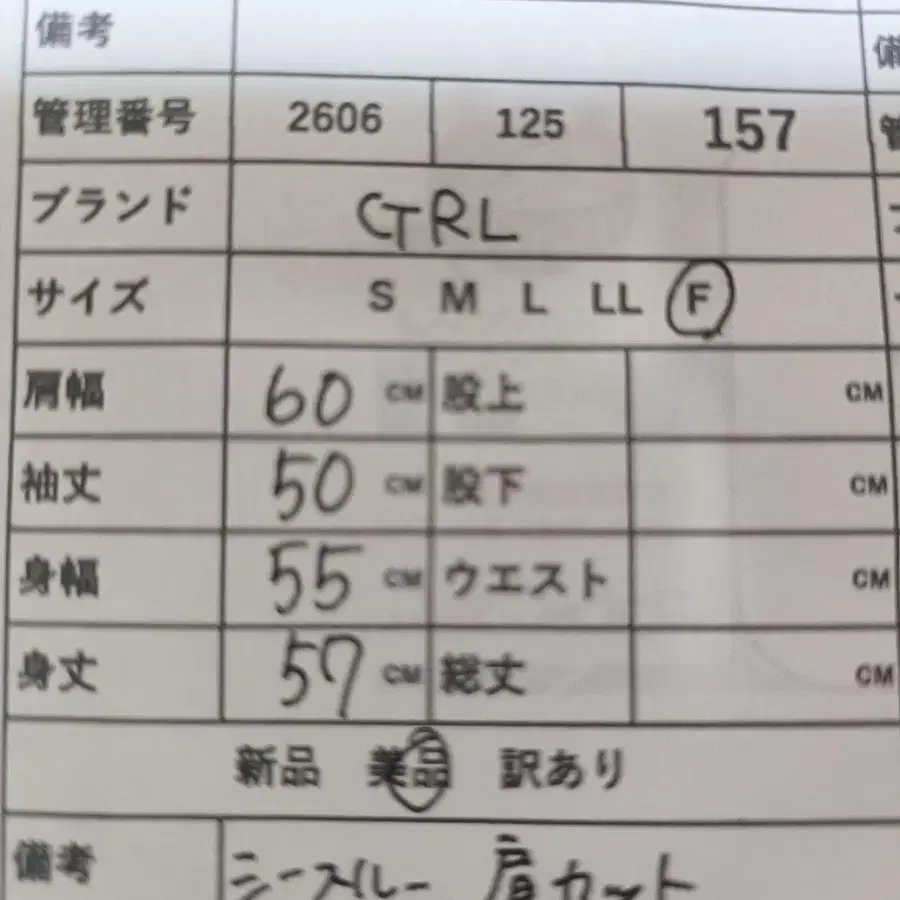 備考
管理番号 2606 125 157
ブランド CTRL
サイズ S M L LL F
肩幅 60 CM 股上 CM
袖丈 50 CM 股下 CM
身幅 55 CM ウエスト CM
身丈 57 CM 総丈 CM
新品 美品 訳あり
備考 シースルー 肩カット